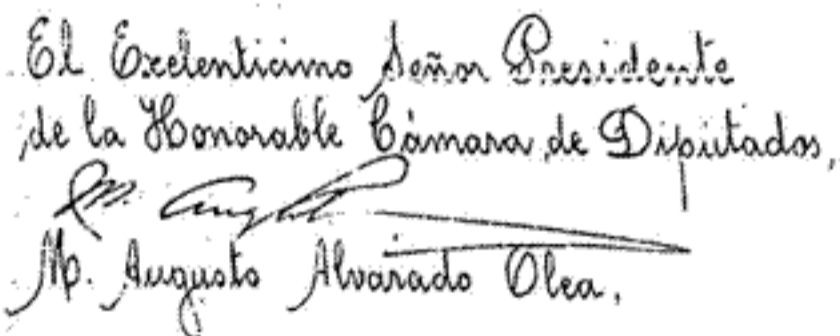 El Exelenticimo Señor Presidente
de la Honorable Cámara de Diputados,
M. Augusto Alvarado Olea,